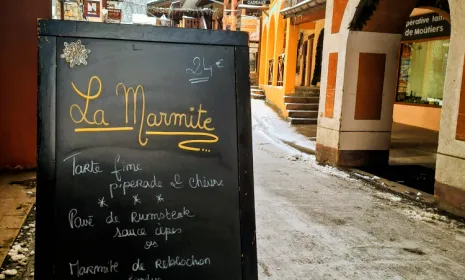 CADEAU
Coopérative laitière
de Moûtiers
24€
La Marmite
Tarte fine
piperade & chèvre
* * *
Pavé de Rumsteak
sauce cèpes
Marmite de Reblochon